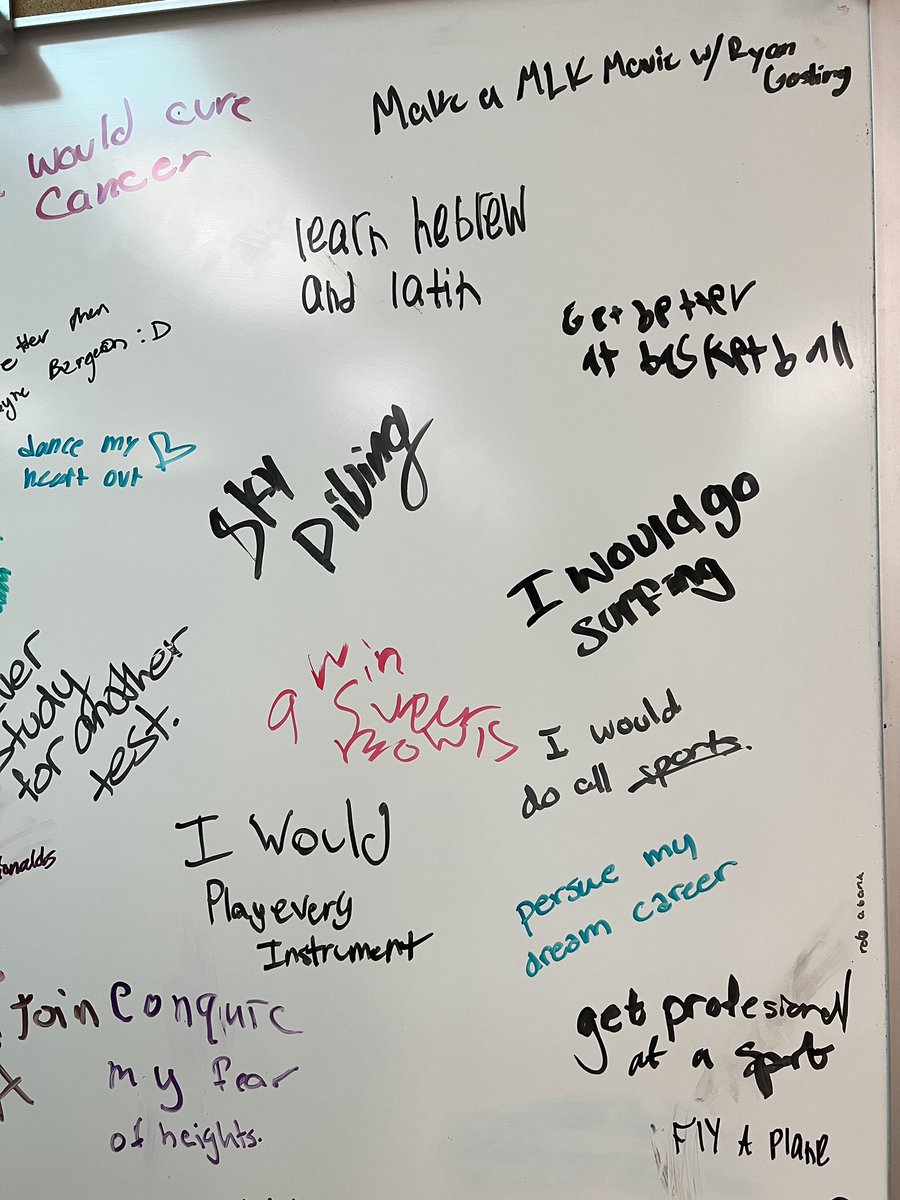 Make a MLK Movie w/ Ryan
Gosling
would cure
cancer
learn hebrew
and latin
Get better
at basketball
Bergeron :D
dance my
heart out
Sky
Diving
I would go
surfing
study
for another
test.
win
9 Super
Bowls
I would
do all sports.
I would
Play every
Instrument
persue my
dream career
rob a bank
Join
Conquire
my fear
of heights.
get profesional
at a sport
FlY A Plane